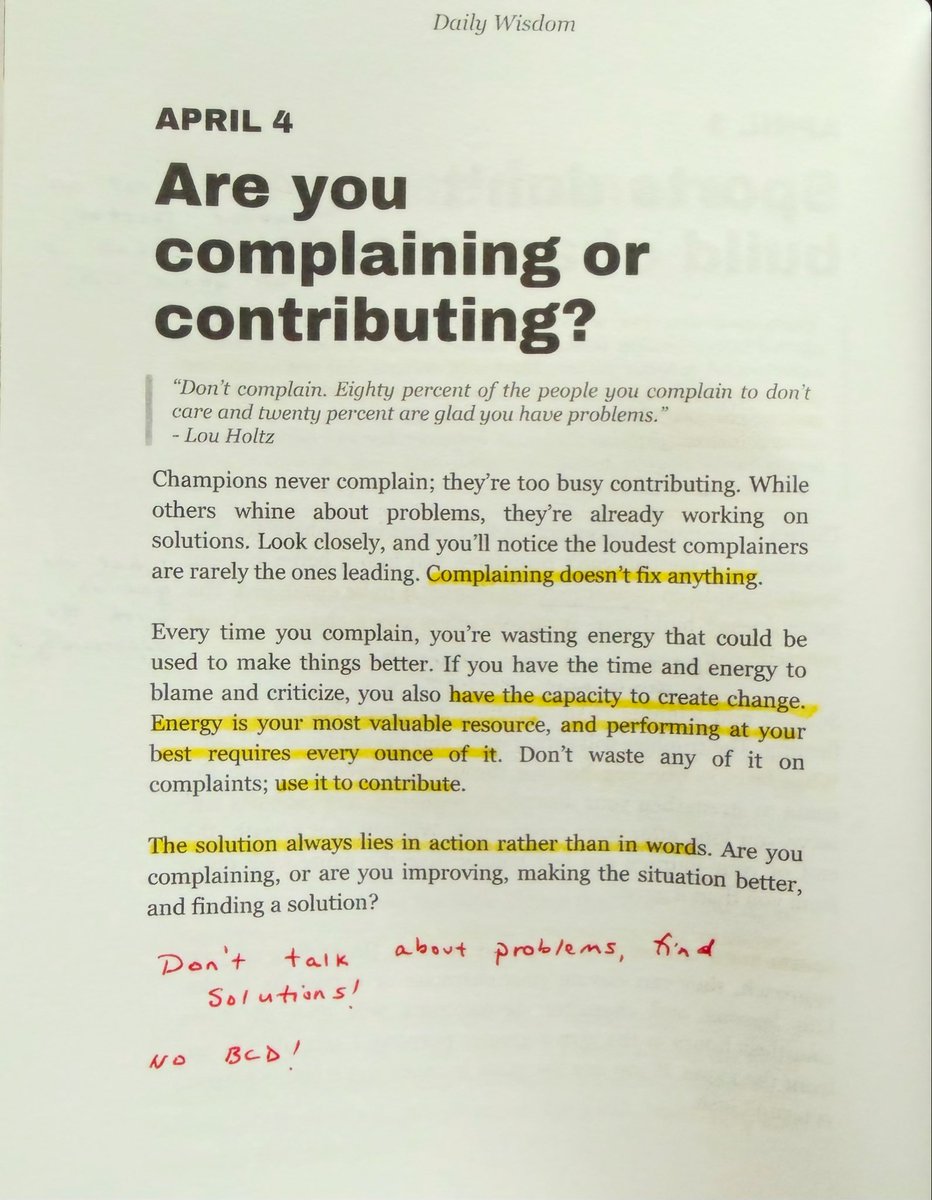 Daily Wisdom
APRIL 4
Are you
complaining or
contributing?
“Don’t complain. Eighty percent of the people you complain to don’t
care and twenty percent are glad you have problems.”
- Lou Holtz
Champions never complain; they’re too busy contributing. While
others whine about problems, they’re already working on
solutions. Look closely, and you’ll notice the loudest complainers
are rarely the ones leading. Complaining doesn’t fix anything.
Every time you complain, you’re wasting energy that could be
used to make things better. If you have the time and energy to
blame and criticize, you also have the capacity to create change.
Energy is your most valuable resource, and performing at your
best requires every ounce of it. Don’t waste any of it on
complaints; use it to contribute.
The solution always lies in action rather than in words. Are you
complaining, or are you improving, making the situation better,
and finding a solution?
Don't talk about problems, find
Solutions!
NO BCD!